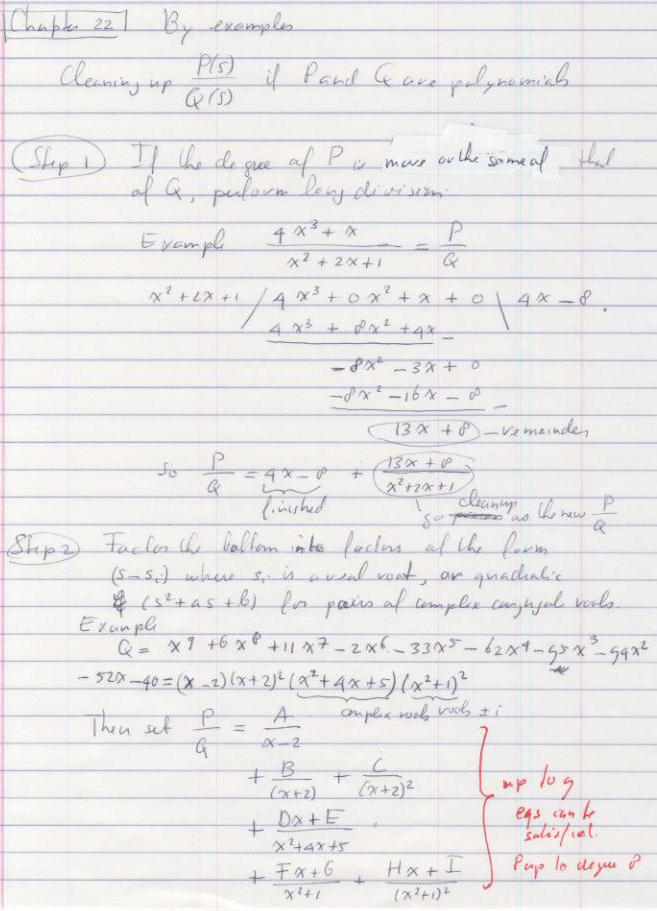 Chapter 22 By examples
Cleaning up P(s)/Q(s) if P and Q are polynomials
Step 1 If the degree of P is more or the same of that
of Q, perform long division.
Example (4x³ + x)/(x² + 2x + 1) = P/Q
x² + 2x + 1 / 4x³ + 0x² + x + 0 \ 4x - 8.
4x³ + 8x² + 4x -
-8x² - 3x + 0
-8x² - 16x - 8 -
13x + 8 - remainder
So P/Q = 4x - 8 + (13x + 8)/(x² + 2x + 1)
finished
go cleanup as the new P/Q
Step 2 Factor the bottom into factors of the form
(s - sᵢ) where sᵢ is a real root, or quadratic
(s² + as + b) for pairs of complex conjugate roots.
Example
Q = x⁹ + 6x⁸ + 11x⁷ - 2x⁶ - 33x⁵ - 62x⁴ - 95x³ - 94x²
- 52x - 40 = (x - 2)(x + 2)² (x² + 4x + 5) (x² + 1)²
complex roots roots ± i
Then set P/Q = A/(x - 2)
+ B/(x + 2) + C/(x + 2)²
+ (Dx + E)/(x² + 4x + 5)
+ (Fx + G)/(x² + 1) + (Hx + I)/(x² + 1)²
up to 9
eqs can be
satisfied.
P up to degree 8